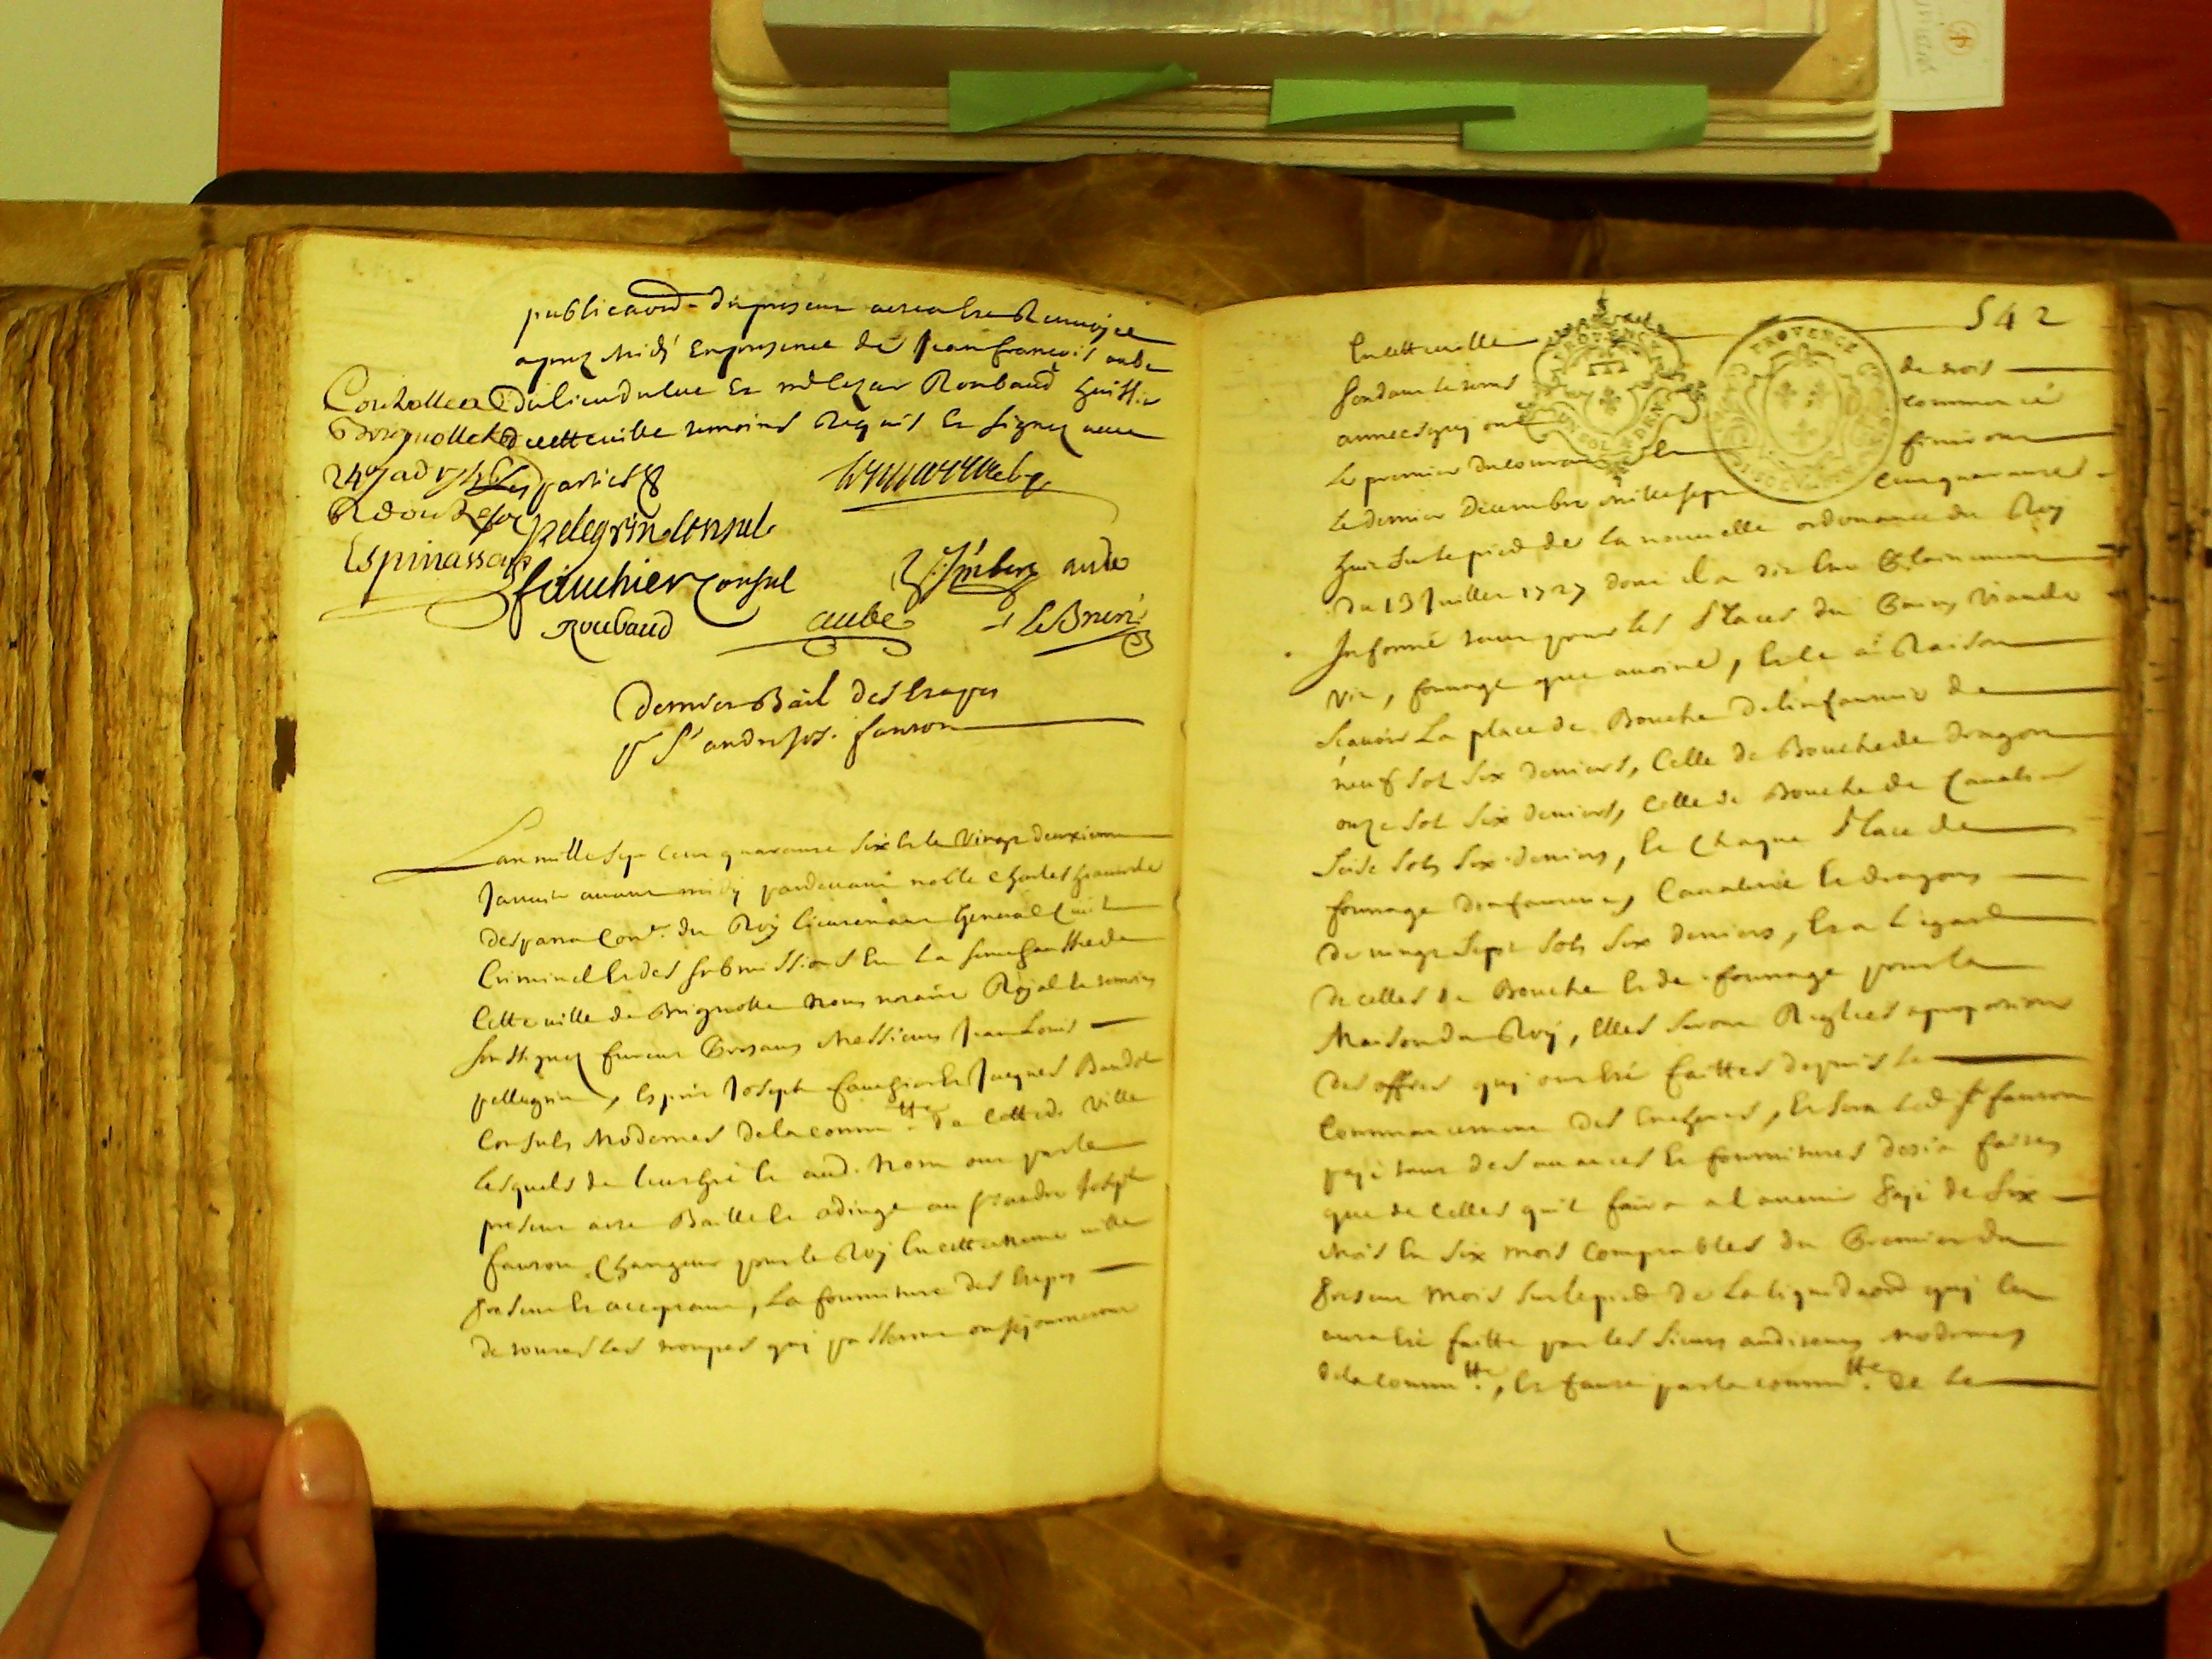 publicaōn du present acte a Esté Renvojée
aprez midy En presence de Jean françois aube
du lieu du luc Et me Cezar Roubaud huissier
de cette ville temoins Requis Et signez avec
Les parties
Controllé a
Brignolle le
24e
Espinassy
pelegrin Consul
fauchier Consul
Roubaud
aube
LeBrun
Dernier Bail des Etapes
Sr andre jos. fauron
Lan mille sept cens quarante six Et le Vingt deuxieme
Janvier avant midy pardevant noble Charles
Conr. du Roy lieutenant General Civil
Criminel Et des submissions En La senechaussée de
Cette ville de Brignolle nous notaire Royal Et temoins
soussignez furent Presans Messieurs Jean Louis
pellegrin, Esprit Joseph fauchier Et Jaques Baudot
Consuls Modernes de la commtté de cette de Ville
Lesquels de leur gré Et aud. Nom ont par le
present acte Baillé Et adjugé au sr andre Joseph
fauron Changeur pour le Roy En cette meme ville
present Et acceptant, La fourniture des Etapes
de toutes Les troupes qui passeront ou sejourneront
542
En cette ville
pendant le tems de trois
années qui ont commencé
Le premier du courant Et finiront
Le dernier Decembre mille sept cens quarante
huit sur le pied de la nouvelle ordonance du Roy
Du 13 Juillet 1727 dont il a dit Etre Plainement
Informé tant pour les Places du Pain, Viande
Vin, fourage que avoine, Et ce a Raison
scavoir La place de Bouche de linfanterie de
neuf sol six deniers, Celle de Bouche de dragon
onze sol six deniers, Celle de Bouche de Cavalier
Seise sols six deniers, Et Chaque Place de
fourrage dinfanterie, Cavalerie Et dragons
de vingt sept sols six deniers, Et a L'egard
de celles de Bouche Et de fourrage pour la
Maison du Roy, Elles seront Reglées a proportion
des offres qui ont Eté faittes depuis le
Commancement des Encheres, Et sera led sr fauron
payé tant des avances Et fournitures desja faites
que de celles qu'il faira a l'avenir de six
mois En six mois comptables du Premier du
present mois sur le pied de La liquidaōn qui En
aura Eté faitte par les sieurs auditeurs modernes
de la commtté, Et faute par la commtté de Le